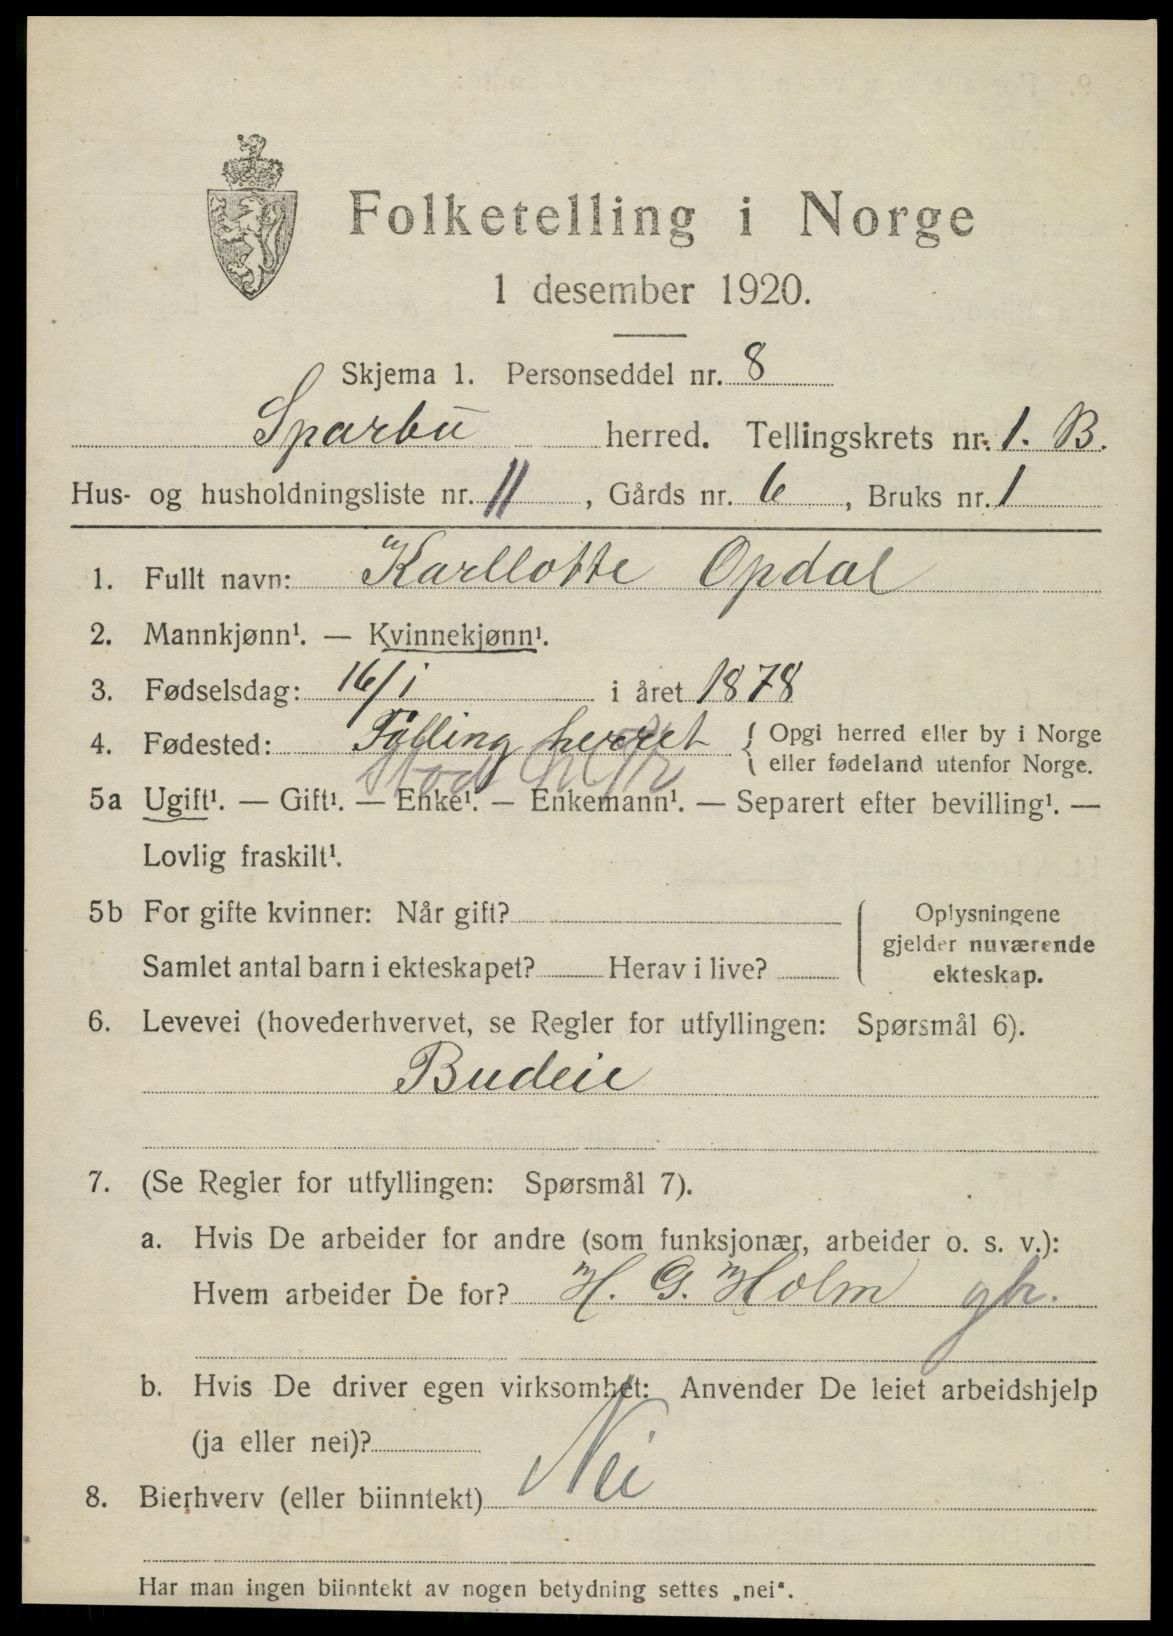 Folketelling i Norge
1 desember 1920.
Skjema 1. Personseddel nr. 8
Sparbu herred. Tellingskrets nr. 1. B.
Hus- og husholdningsliste nr. 11, Gårds nr. 6, Bruks nr. 1
1. Fullt navn: Karllotte Opdal
2. Mannkjønn¹. — Kvinnekjønn¹.
3. Fødselsdag: 16/1 i året 1878
4. Fødested: Følling herret { Opgi herred eller by i Norge
eller fødeland utenfor Norge.
Stod
5a Ugift¹. — Gift¹. — Enke¹. — Enkemann¹. — Separert efter bevilling¹. —
Lovlig fraskilt¹.
5b For gifte kvinner: Når gift?
Samlet antal barn i ekteskapet? Herav i live?
Oplysningene
gjelder nuværende
ekteskap.
6. Levevei (hovederhvervet, se Regler for utfyllingen: Spørsmål 6).
Budeie
7. (Se Regler for utfyllingen: Spørsmål 7).
a. Hvis De arbeider for andre (som funksjonær, arbeider o. s. v.):
Hvem arbeider De for? H. G. Holm gbr.
b. Hvis De driver egen virksomhet: Anvender De leiet arbeidshjelp
(ja eller nei)?
8. Bierhverv (eller biinntekt) Nei
Har man ingen biinntekt av nogen betydning settes „nei“.